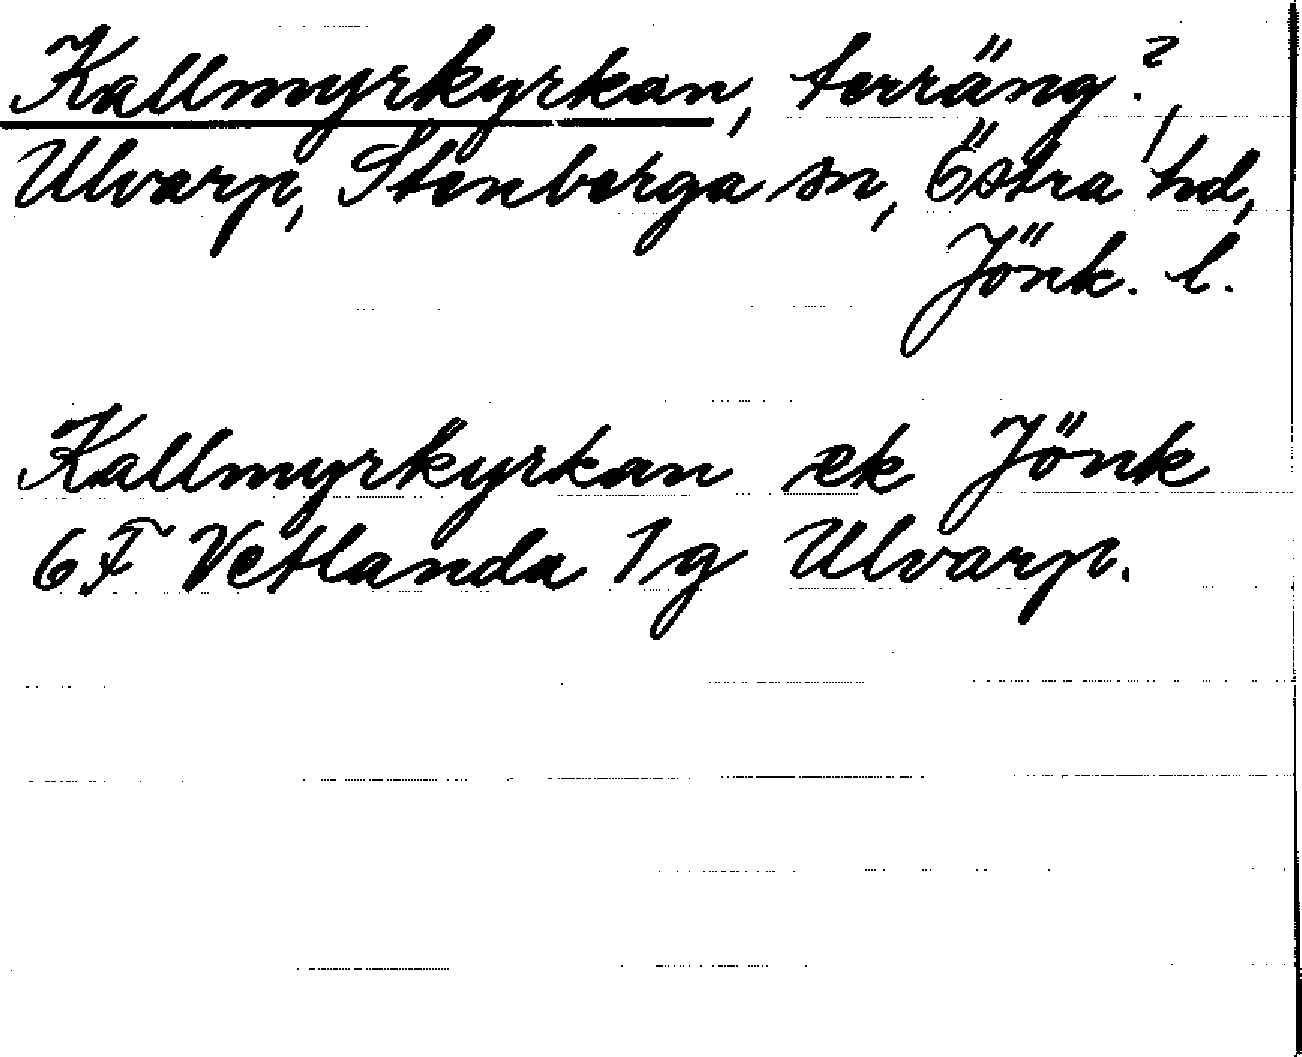 Kallmyrkyrkan, terräng?,
Ulvarp, Stenberga sn, Östra hd,
Jönk. l.
Kallmyrkyrkan ek Jönk
6F Vetlanda 1g Ulvarp.